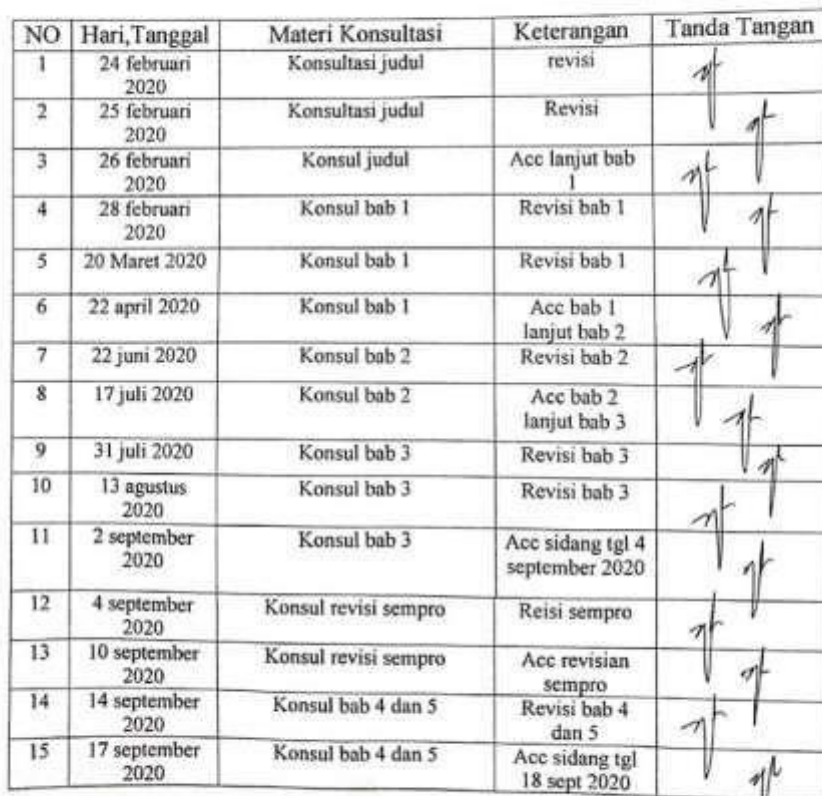 NO Hari,Tanggal Materi Konsultasi Keterangan Tanda Tangan
1 24 februari Konsultasi judul revisi
2020
2 25 februari Konsultasi judul Revisi
2020
3 26 februari Konsul judul Acc lanjut bab
2020 1
4 28 februari Konsul bab 1 Revisi bab 1
2020
5 20 Maret 2020 Konsul bab 1 Revisi bab 1
6 22 april 2020 Konsul bab 1 Acc bab 1
lanjut bab 2
7 22 juni 2020 Konsul bab 2 Revisi bab 2
8 17 juli 2020 Konsul bab 2 Acc bab 2
lanjut bab 3
9 31 juli 2020 Konsul bab 3 Revisi bab 3
10 13 agustus Konsul bab 3 Revisi bab 3
2020
11 2 september Konsul bab 3 Acc sidang tgl 4
2020 september 2020
12 4 september Konsul revisi sempro Reisi sempro
2020
13 10 september Konsul revisi sempro Acc revisian
2020 sempro
14 14 september Konsul bab 4 dan 5 Revisi bab 4
2020 dan 5
15 17 september Konsul bab 4 dan 5 Acc sidang tgl
2020 18 sept 2020